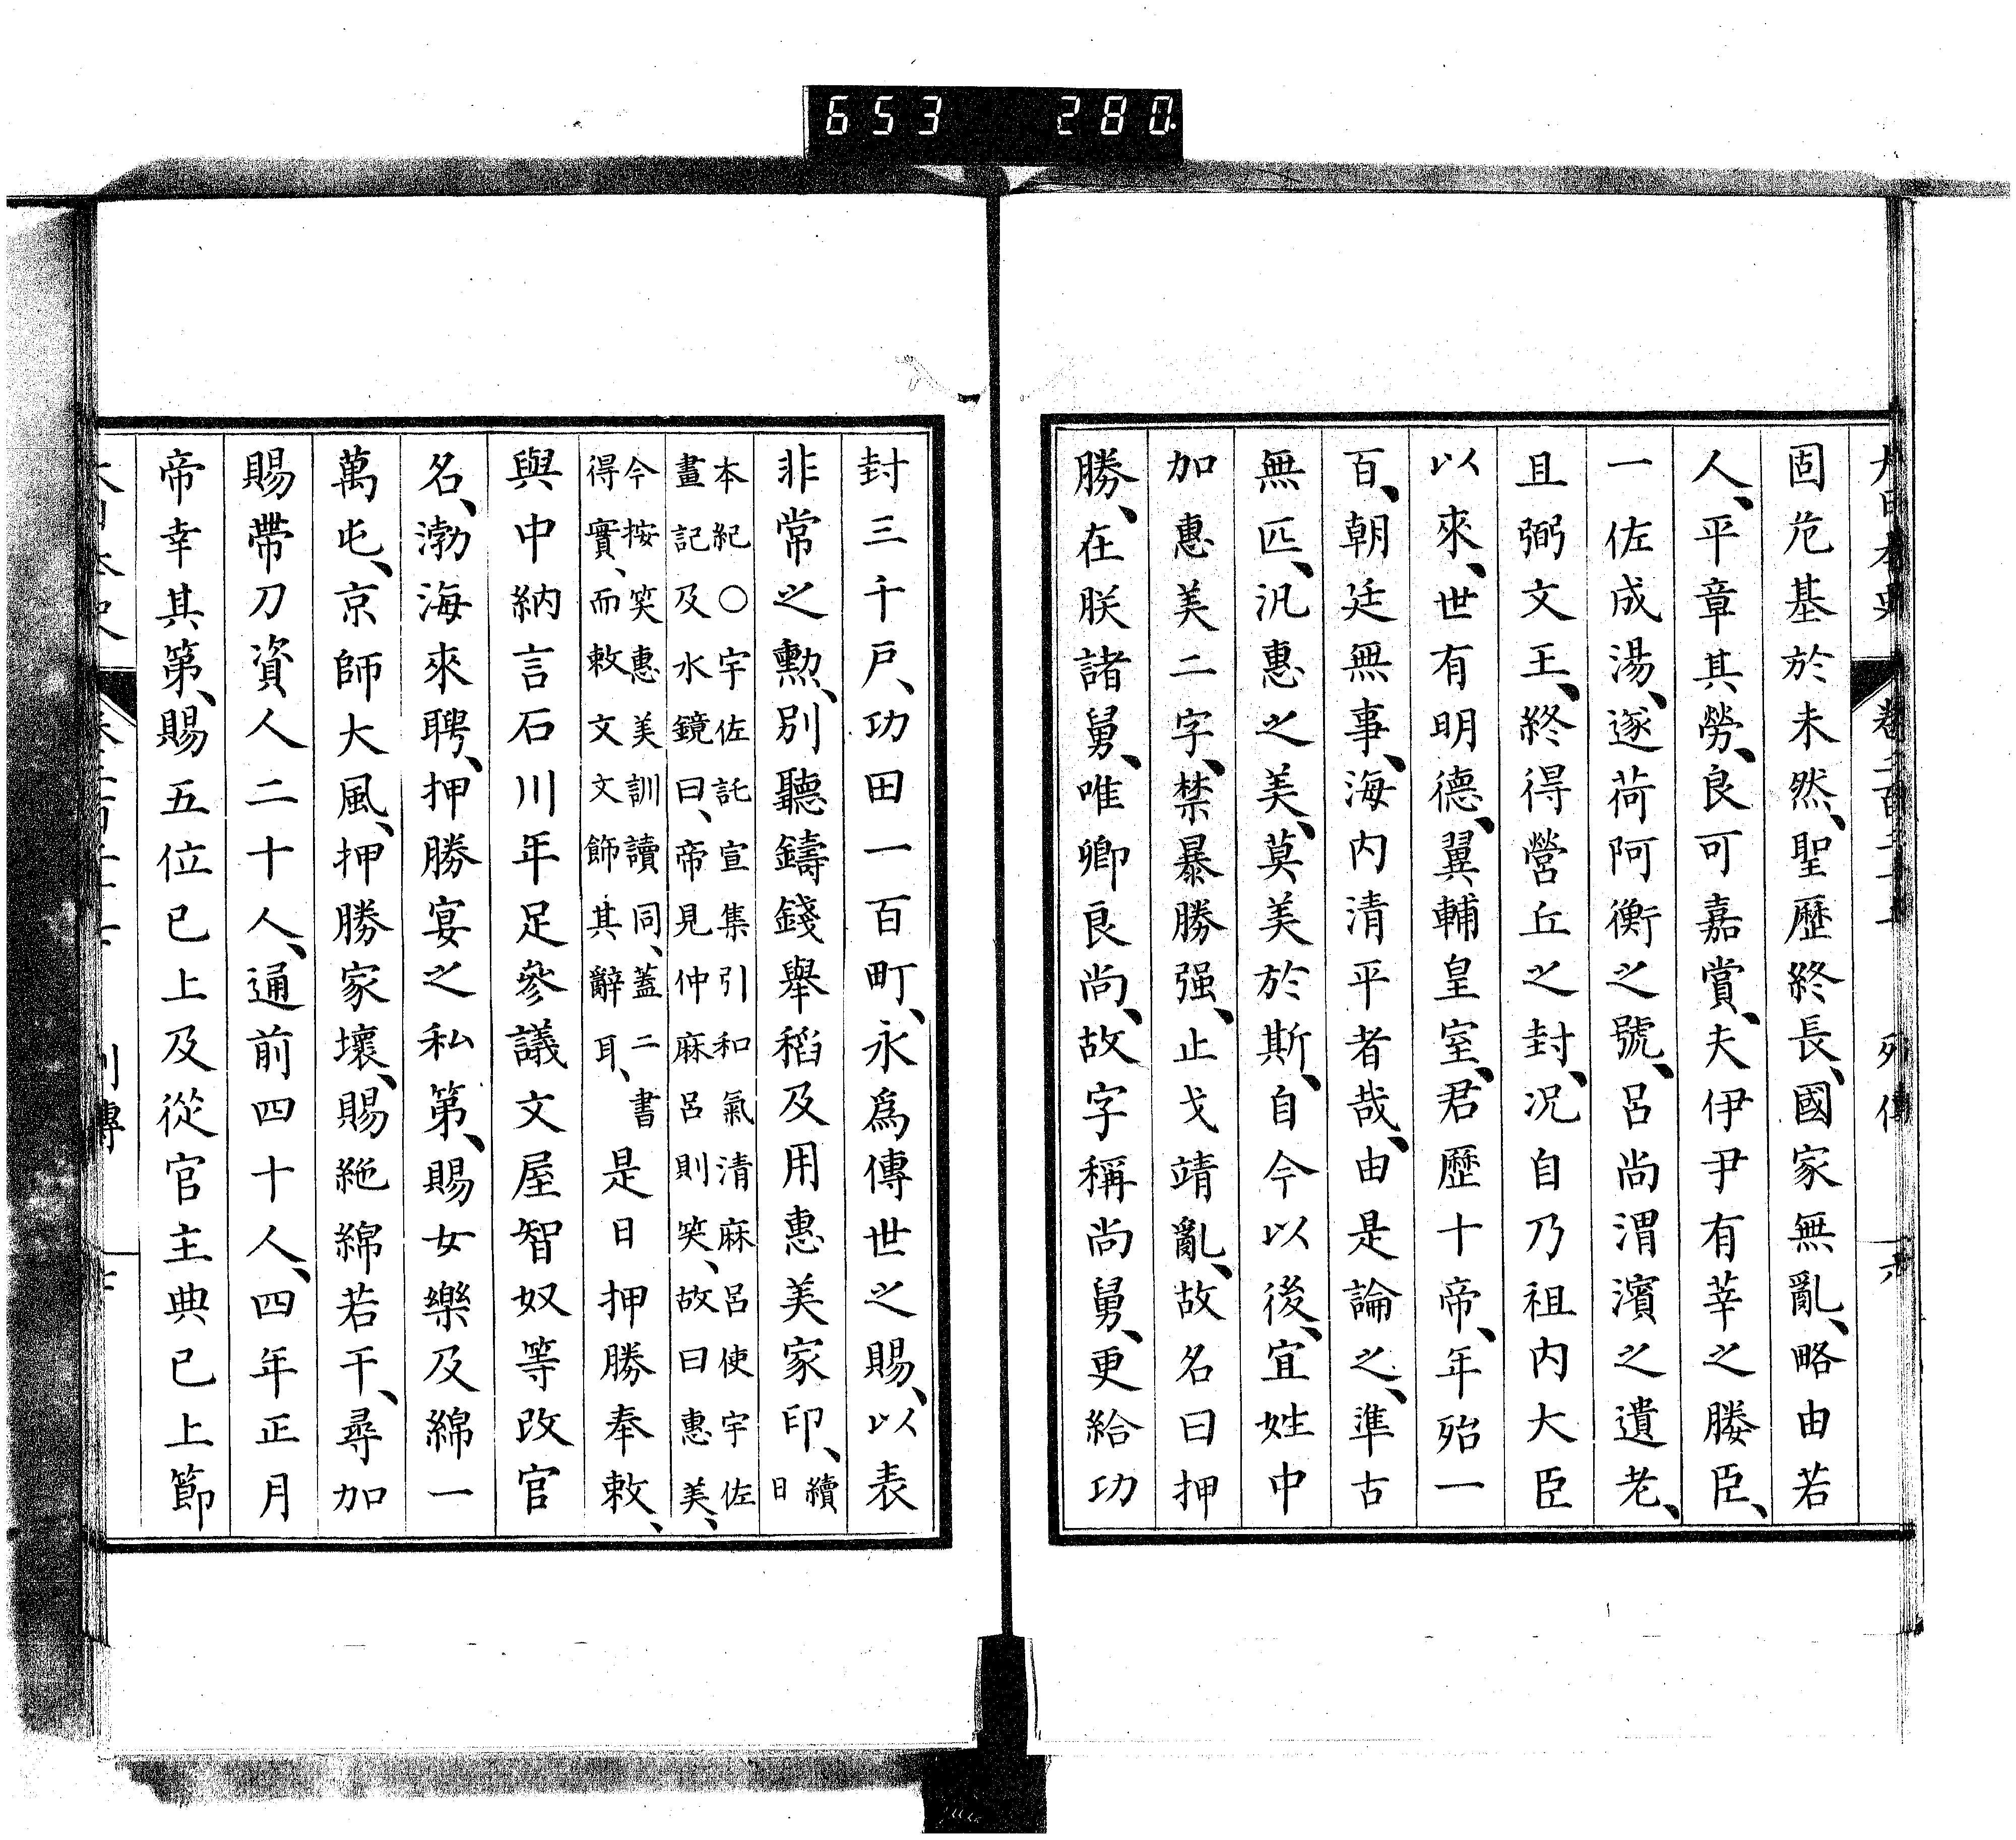 653 280
固危基於未然、聖歷終長、國家無亂、略由若
人、平章其勞、良可嘉賞、夫伊尹有莘之媵臣、
一佐成湯、遂荷阿衡之號、呂尚渭濱之遺老、
且弼文王、終得營丘之封、况自乃祖內大臣
以來、世有明德、翼輔皇室、君歷十帝、年殆一
百、朝廷無事、海內清平者哉、由是論之、準古
無匹、汎惠之美、莫美於斯、自今以後、宜姓中
加惠美二字、禁暴勝强、止戈靖亂、故名曰押
勝、在朕諸舅、唯卿良尚、故字稱尚舅、更給功
封三千戶、功田一百町、永爲傳世之賜、以表
非常之勲、別聽鑄錢舉稻及用惠美家印、續日
本紀○宇佐託宣集引和氣清麻呂使宇佐
畫記及水鏡曰、帝見仲麻呂則笑、故曰惠美、
今按笑惠美訓讀同、蓋二書
得實、而敕文文飾其辭耳、是日押勝奉敕、
與中納言石川年足參議文屋智奴等改官
名、渤海來聘、押勝宴之私第、賜女樂及綿一
萬屯、京師大風、押勝家壞、賜絁綿若干、尋加
賜帶刀資人二十人、通前四十人、四年正月
帝幸其第、賜五位已上及從官主典已上節